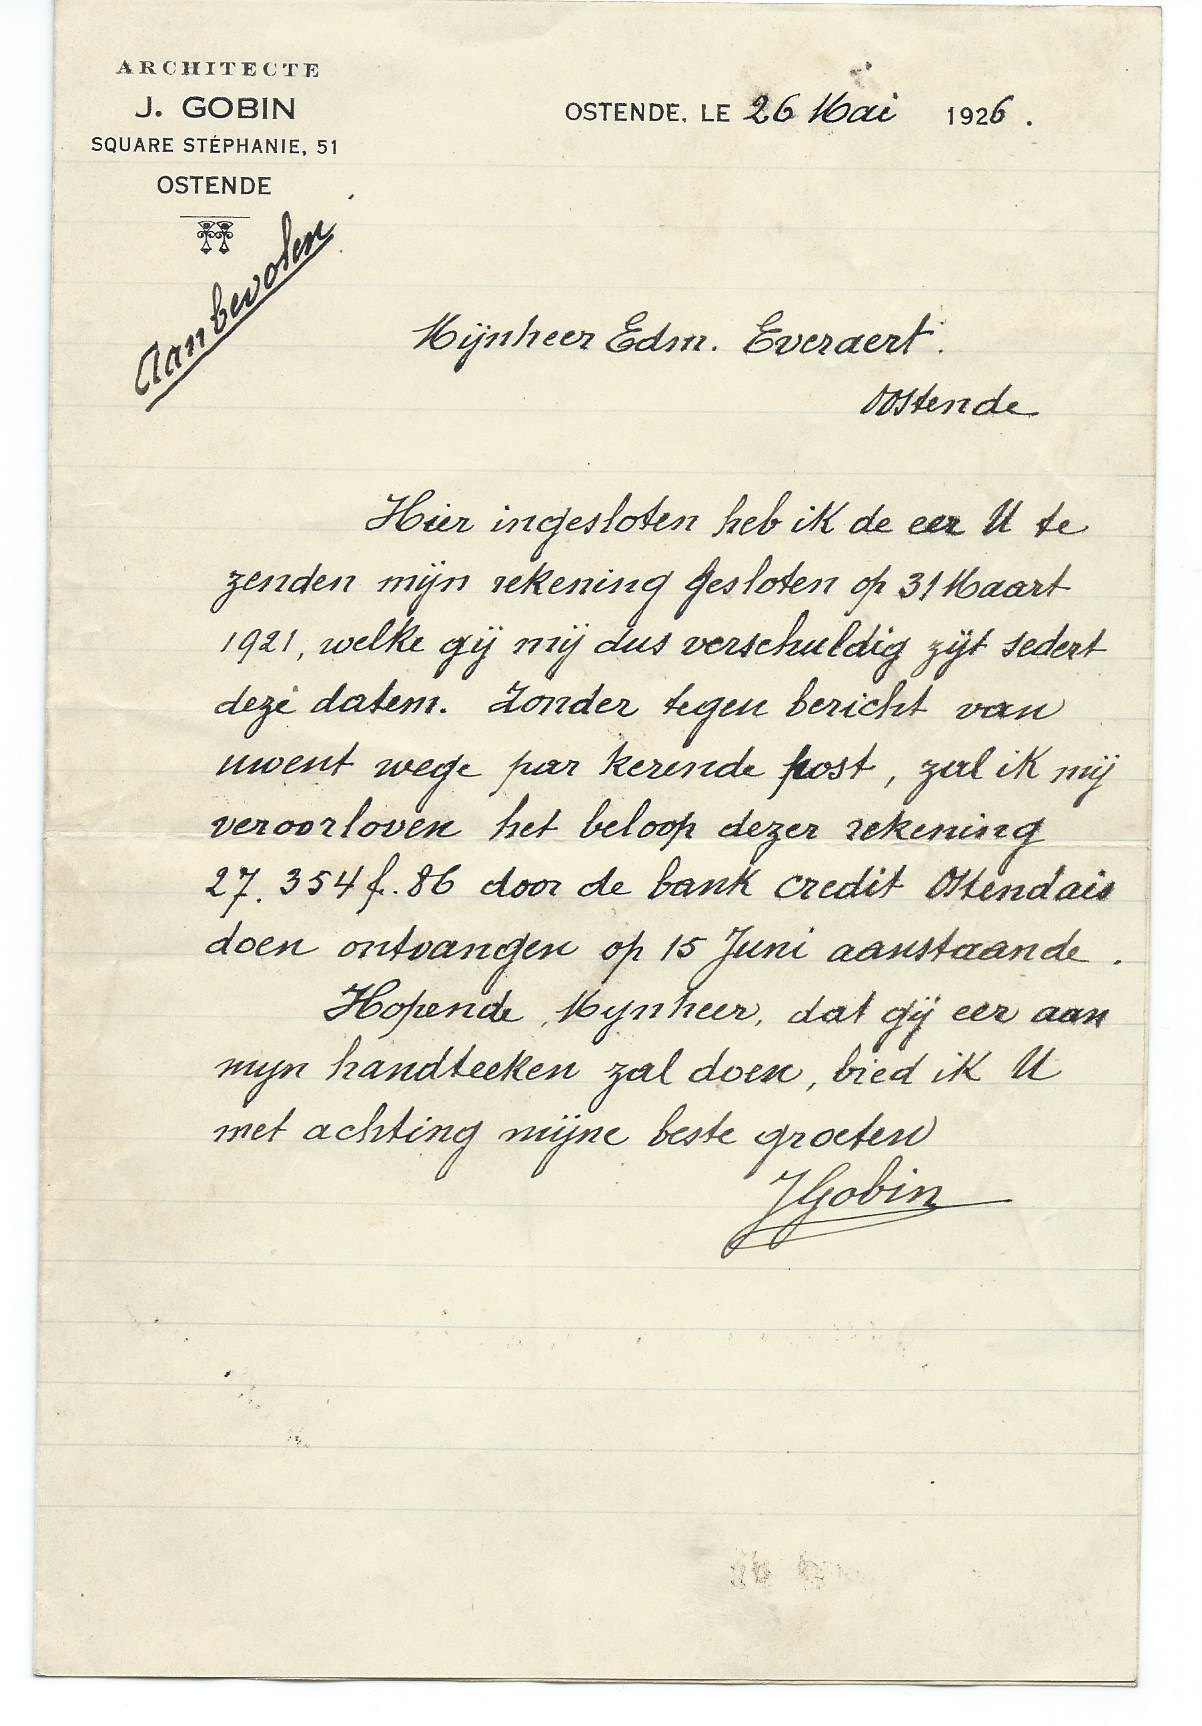 ARCHITECTE
J. GOBIN
SQUARE STÉPHANIE, 51
OSTENDE
OSTENDE, LE 26 Mai 1926.
Aanbevolen
Mijnheer Edm. Everaert.
Oostende
Hier ingesloten heb ik de eer U te
zenden mijn rekening gesloten op 31 Maart
1921, welke gij mij dus verschuldig zijt sedert
deze datem. Zonder tegen bericht van
uwent wege par kerende post, zal ik mij
veroorloven het beloop dezer rekening
27.354 f. 86 door de bank credit Ostendais
doen ontvangen op 15 Juni aanstaande.
Hopende, Mynheer, dat gij eer aan
myn handteeken zal doen, bied ik U
met achting mijne beste groeten
JGobin